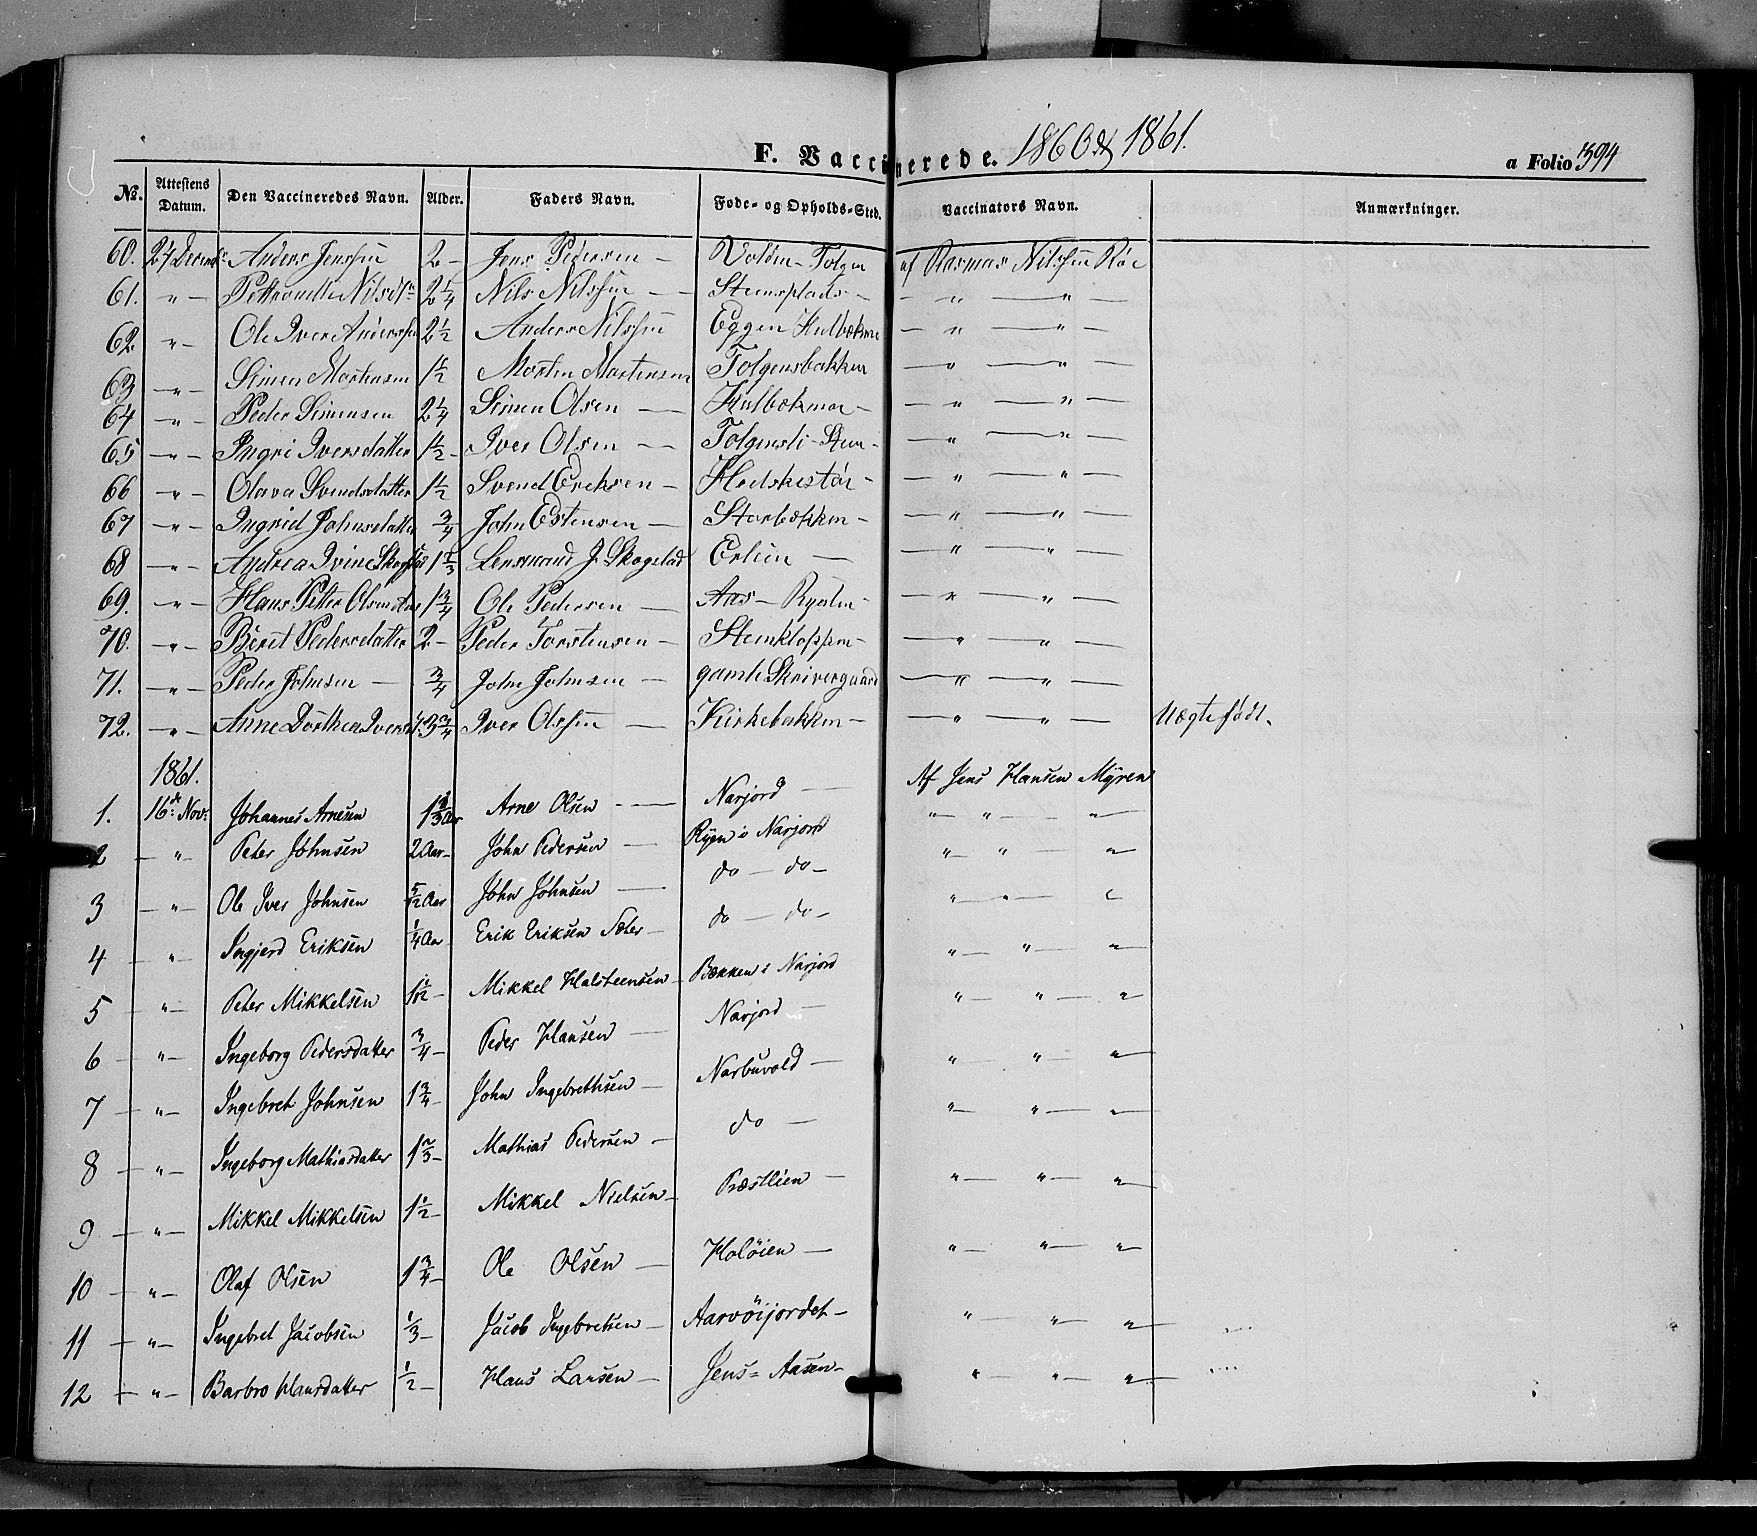 F. Vaccinerede. 1860 & 1861.
a Folio 394
No. Attestens Datum. Den Vaccineredes Navn. Alder. Faders Navn. Føde- og Opholds-Sted. Vaccinators Navn. Anmærkninger.
60. 27 Decemb. Anders Jenssen 2 - Jens Pedersen - Volden - Tolgen af Rasmus Nilssen Røe
61. " - Nilsd. 2 1/4 Nils Nilssen - - Steensplads - - " - " -
62. " - Ole Iver Anderssen 2 1/2 Anders Nilssen Eggen Kulbækmo - " - " -
63 " - Simen Mortensen 1 1/2 Morten Mortensen Tolgensbakken - " - " -
64 " - Peder Simensen 2 1/4 Simen Olsen - Kulbækmoe - - " - " -
65 " - Ingri Iversdatter 1 1/2 - Iver Olsen - Tolgensli - - " - " -
66 " - Olava Svendsdatter 1 1/2 Svend Eriksen - - " - " -
67 " - Ingrid Johnsdatter 3/4 John Estensen - Storbækken - - " - " -
68 " - Andrea 1 1/3 Lensmand J. Skogstad Erlien - - " - " -
69. " - Hans Petter Olsen Aas 1 3/4 Ole Pedersen - Aas - - " - " -
70. " - Berit Pedersdatter 2 - Peder Torstensen - Steenkloppen - - " - " -
71. " - Peder Johnsen - 3/4 John Johnsen - gamle Skrivergaard - " - " -
72. " - Anne Dorthea Iversd. 3 3/4 Iver Olssen - Kirkebakken - - " - " - Uægtefødt.
1861.
Af Jens Hansen Myren
1. 16de Nov: Johannes Arnesen 1 2/3 Aar Arne Olsen - Narjord - " - " - "
2 - " Peter Johnsen 2 Aar - John Pedersen - Ryen i Narjord " - " - "
3 - " - Ole Iver Johnsen 5/12 Aar John Johnsen - do - do - " - " - "
4 - " - Ingjerd Eriksen 1/4 Aar Erik Eriksen Sæter - do - do - " - " - "
5 - " - Peter Mikkelsen 1 1/12 - Mikkel Halsteensen - Bækken i Narjord " - " - "
6 - " - Ingeborg Pedersdatter 3/4 - Peder Hansen - Narjord - " - " - "
7 - " - Ingebret Johnsen 1 3/4 - John Ingebrethsen - Narbuvold - " - " - "
8 - " - Ingeborg Mathiasdatter 1 2/3 - Mathias Pedersen - do - " - " - "
9 - " - Mikkel Mikkelsen 1 1/2 - Mikkel Nielsen - Præstlien - " - " - "
10 - " - Olaf Olsen 1 3/4 - Ole Olsen - Holøien - " - " - "
11 - " - Ingebret Jacobsen 1/3 - Jacob Ingebretsen - Aarvøijordet - " - " - "
12 - " - Barbro Hansdatter 1/2 - Hans Larsen - Jens=Aasen - " - " - "